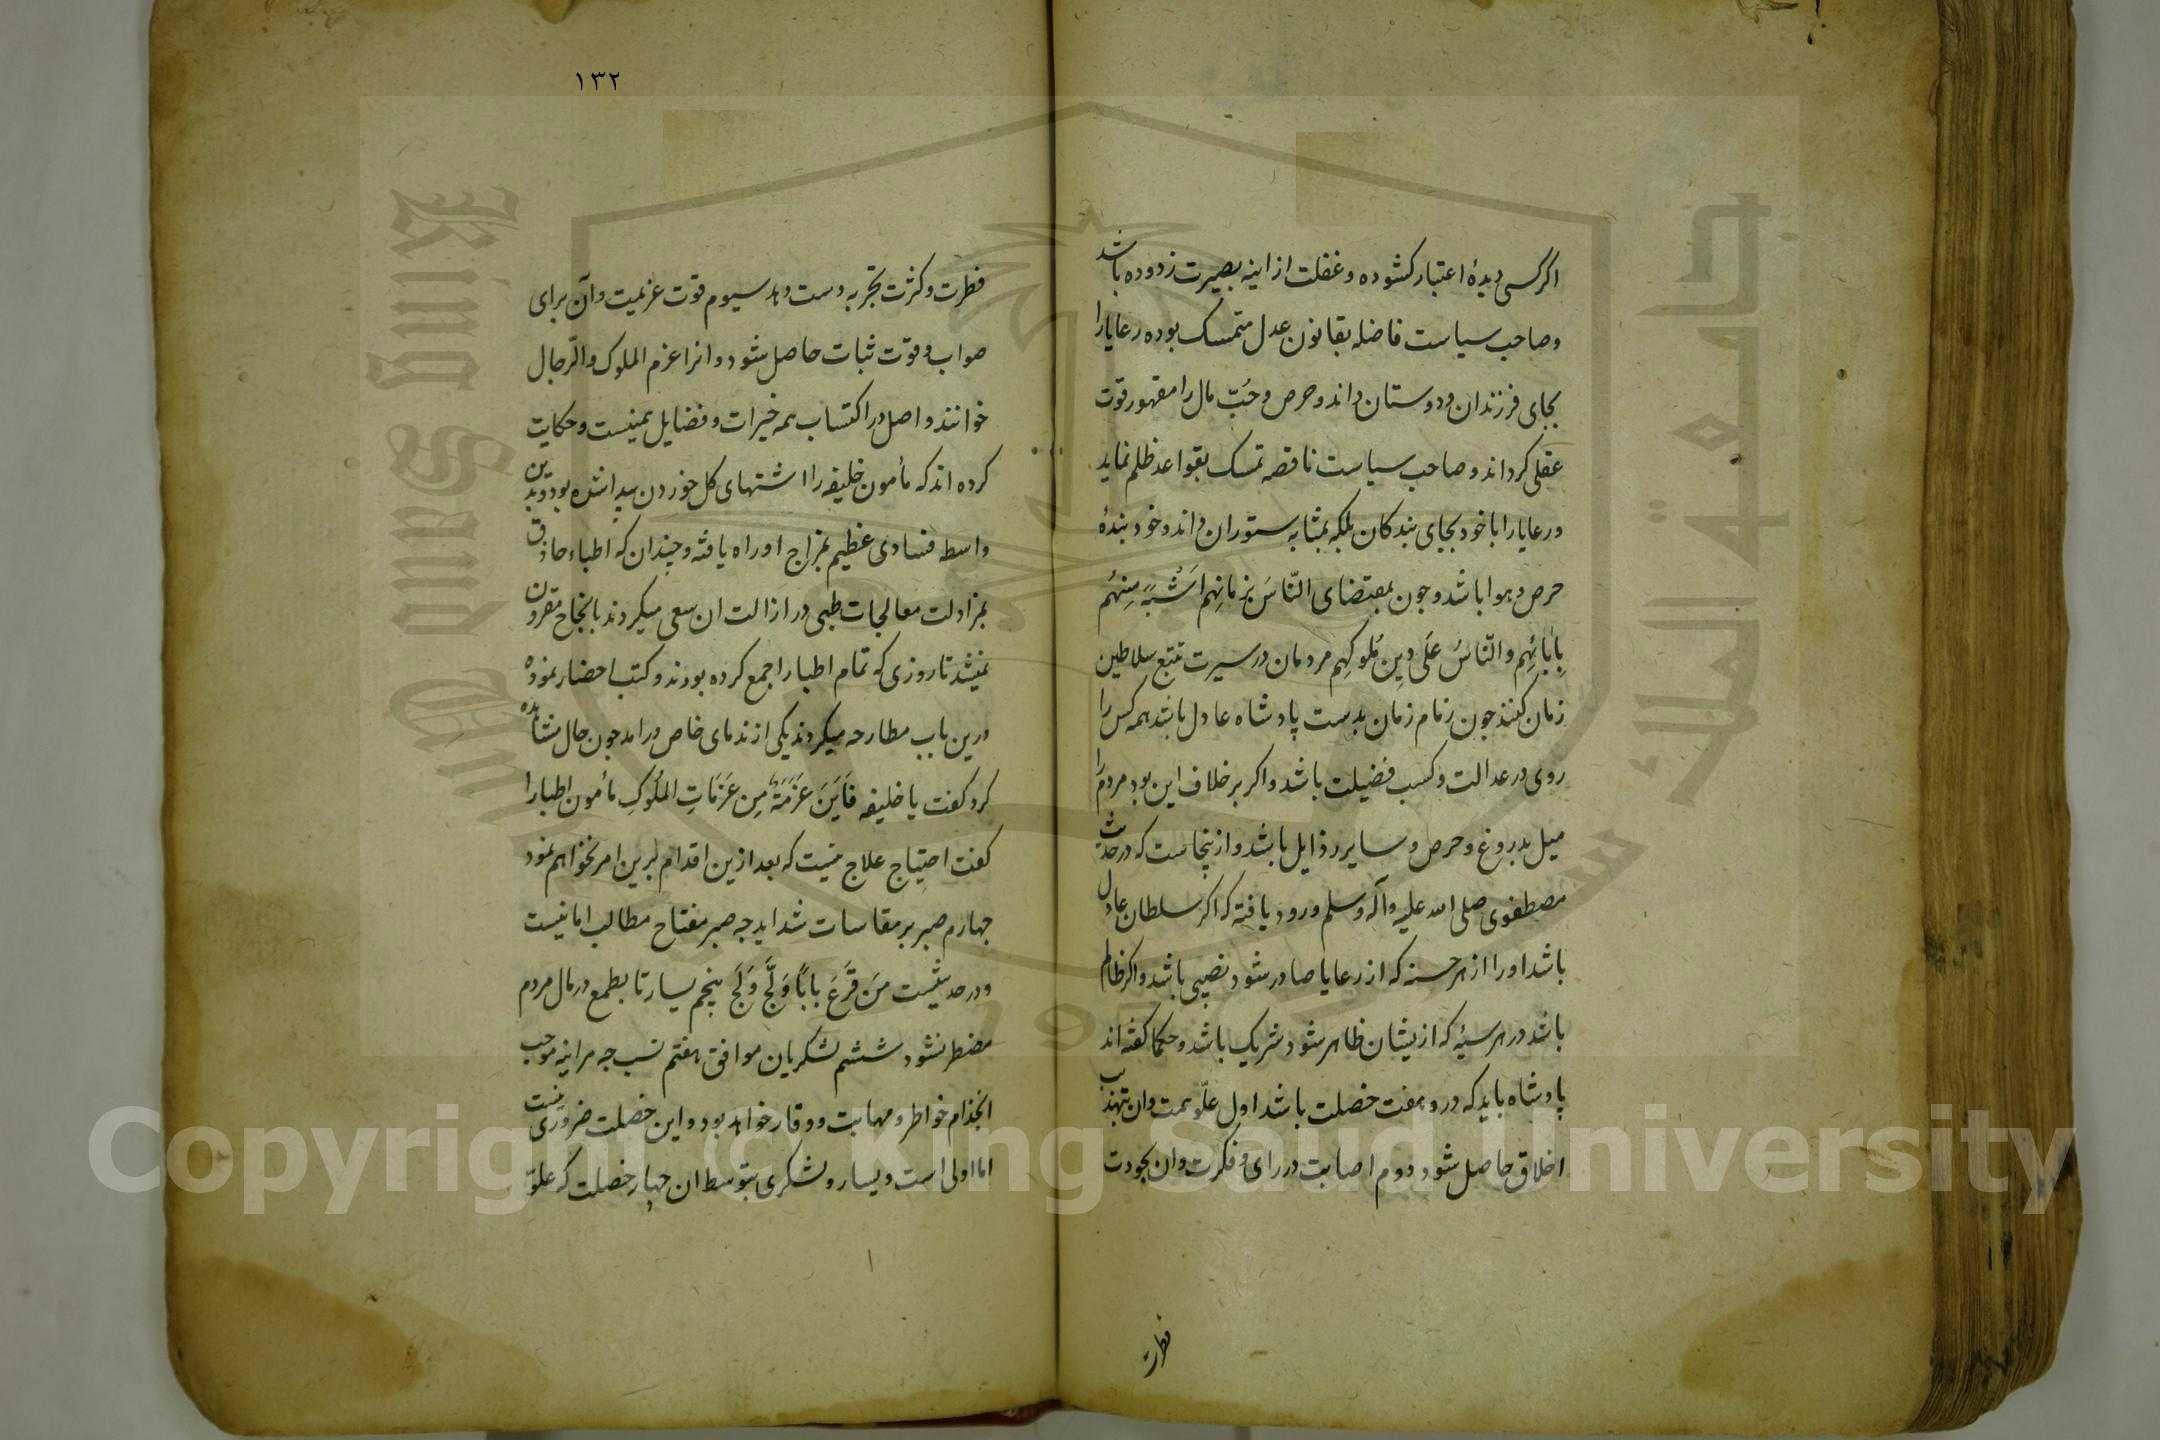 اکر کسی دیدهٔ اعتبار کشوده و غفلت از اینه بصیرت زدوده باشد
و صاحب سیاست فاضله بقانون عدل متمسک بوده رعایا را
بجای فرزندان و دوستان داند و حرص و حُبّ مال را مقهور قوت
عقلی کرداند و صاحب سیاست ناقصه تمسک بقواعد ظلم نماید
و رعایا را با خود بجای بندکان بلکه بمثابه ستوران داند و خود بندهٔ
حرص و هوا باشد و جون بمقتضای النّاسَ بزمانِهِم اَشْبَهَ مِنهُم
بِاٰبائِهِم و النّاسُ عَلَی دِینِ مُلوکِهِم مردمان در سیرت تتبع سلاطین
زمان کنند جون زمام زمان بدست پادشاه عادل باشد همه کس را
روی در عدالت و کسب فضیلت باشد و اکر بر خلاف این بود مردم را
میل بدروغ و حرص و سایر رذایل باشد و ازینجاست که در حدیث
مصطفوی صلی الله علیه و آله وسلم ورود یافته که اکر سلطان عادل
باشد او را از هر حسنه که از رعایا صادر شود نصیبی باشد و اکر ظالم
باشد در هر سیّهٔ که ازیشان ظاهر شود شریک باشد و حکما کفته اند
پادشاه باید که درو هفت خصلت باشد اول علوّ همت و ان بتهذیب
اخلاق حاصل شود دوم اصابت در رای و فکرت و ان بجودت
فطرت
١٣٢
فطرت و کثرت تجربه دست دهد سیوم قوت عزیمت و آن برای
صواب و قوّت ثبات حاصل شود و انرا عزم الملوک و الّرجال
خوانند و اصل در اکتساب همه خیرات و فضایل همینست و حکایت
کرده اند که مأمون خلیفه را اشتهای کل خوردن پیدا شده بود و بدین
واسطه فسادی عظیم بمزاج او راه یافته و چندان که اطباء حاذق
بمزاولت معالجات طبی در ازالت ان سعی میکردند بانجاح مقرون
نمیشد تا روزی که تمام اطبا را جمع کرده بودند و کتب احضار نموده
درین باب مطارحه میکردند یکی از ندمای خاص درامد جون حال مشاهده
کرد کفت یا خلیفه فَاَینَ عَزمَةٌ مِن عَزَماتِ المُلُوکِ مأمون اطبا را
کفت احتیاج علاج نیست که بعد ازین اقدام برین امر نخواهم نمود
جهارم صبر بر مقاسات شداید جه صبر مفتاح مطالب امانیست
و در حدیثست مَن قَرَعَ بابًا وَلَجَّ وَلَجَ پنجم یسار تا بطمع در مال مردم
مضطر نشود ششم لشکریان موافق هفتم نسب جه هراینه موجب
انجذام خواطر و مهابت و وقار خواهد بود و این خصلت ضروری نیست
اما اولی است و یسار و لشکری بتوسط ان چهار خصلت که علوّ
Copyright © King Saud University